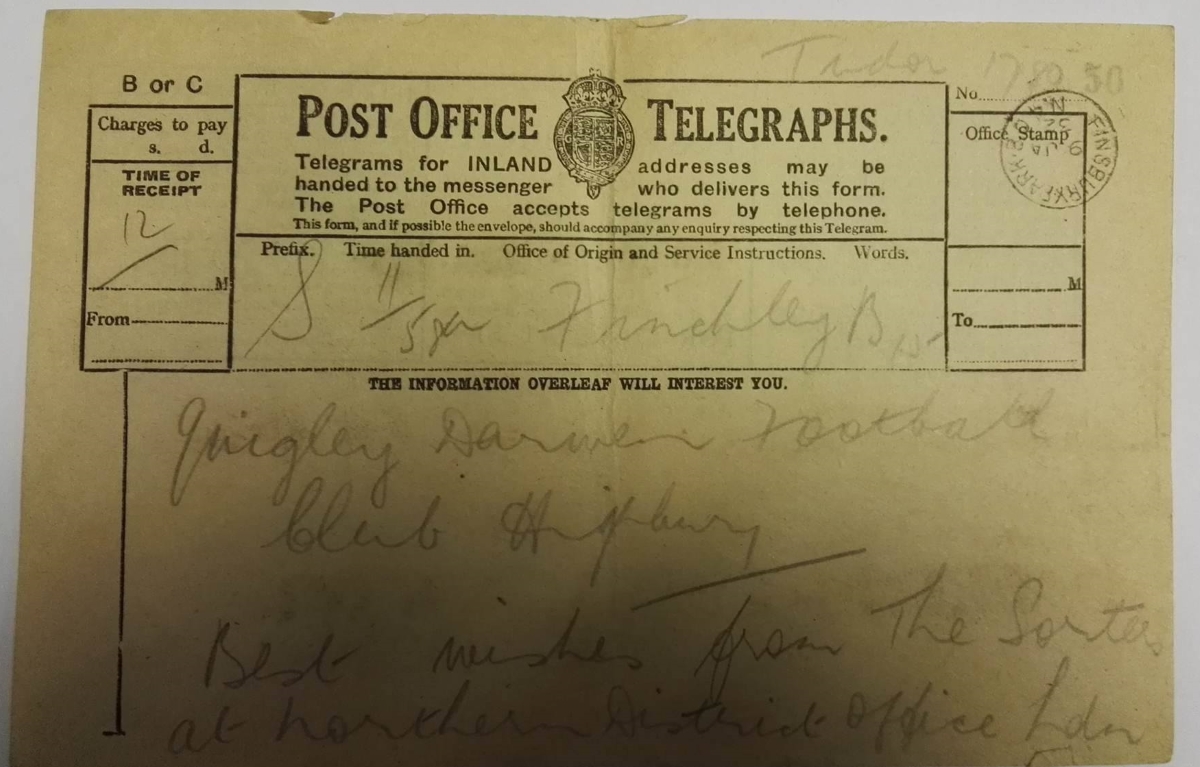 Tudor 17 30 50
B or C
Charges to pay
s. d.
TIME OF
RECEIPT
12
M
From
POST OFFICE TELEGRAPHS.
Telegrams for INLAND addresses may be
handed to the messenger who delivers this form.
The Post Office accepts telegrams by telephone.
This form, and if possible the envelope, should accompany any enquiry respecting this Telegram.
Prefix. Time handed in. Office of Origin and Service Instructions. Words.
S 11/5 Finchley B 15
No.
Office Stamp
FINSBURY PARK
9 JA 32
N.4
M
To
THE INFORMATION OVERLEAF WILL INTEREST YOU.
Quigley Darwen Football
Club Highbury
Best wishes from The Sorters
at Northern District Office Ldn